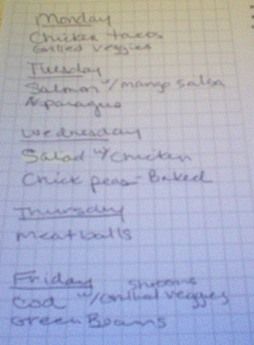 Monday
Chicken tacos
Grilled veggies
Tuesday
Salmon w/ mango salsa
Asparagus
Wednesday
Salad w/ Chicken
Chick peas - Baked
Thursday
Meatballs
Friday
Shrooms
Cod w/ Grilled veggies
Green Beans